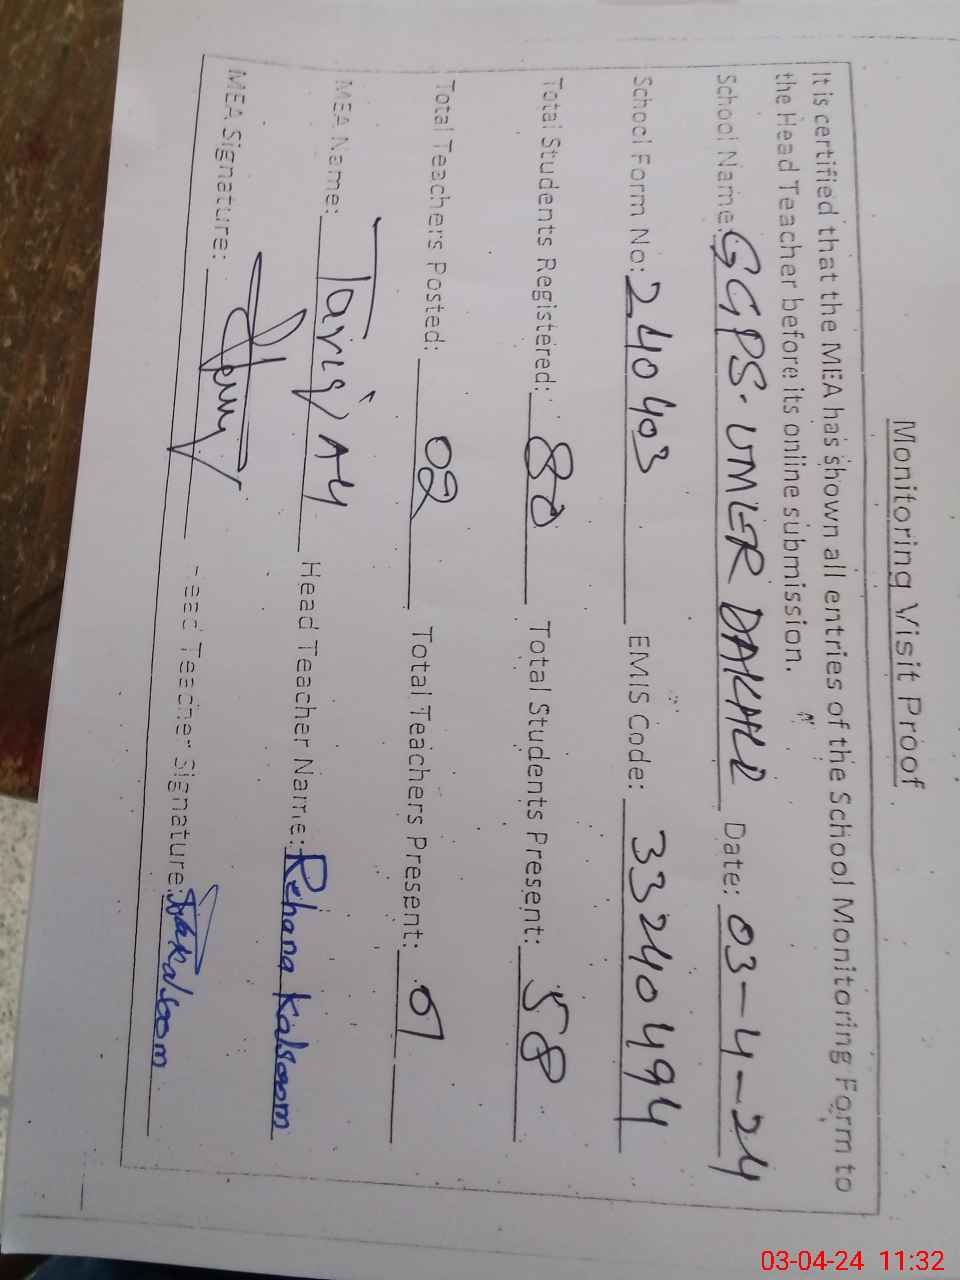 Monitoring Visit Proof
It is certified that the MEA has shown all entries of the School Monitoring Form to
the Head Teacher before its online submission.
School Name: GGPS. UMER DAHALL Date: 03-4-24
School Form No: 240403 EMIS Code: 33240494
Total Students Registered: 80 Total Students Present: 58
Total Teachers Posted: 02 Total Teachers Present: 01
MEA Name: Tariq Head Teacher Name: Rehana Kalsoom
MEA Signature: Head Teacher Signature: Kalsoom
03-04-24 11:32